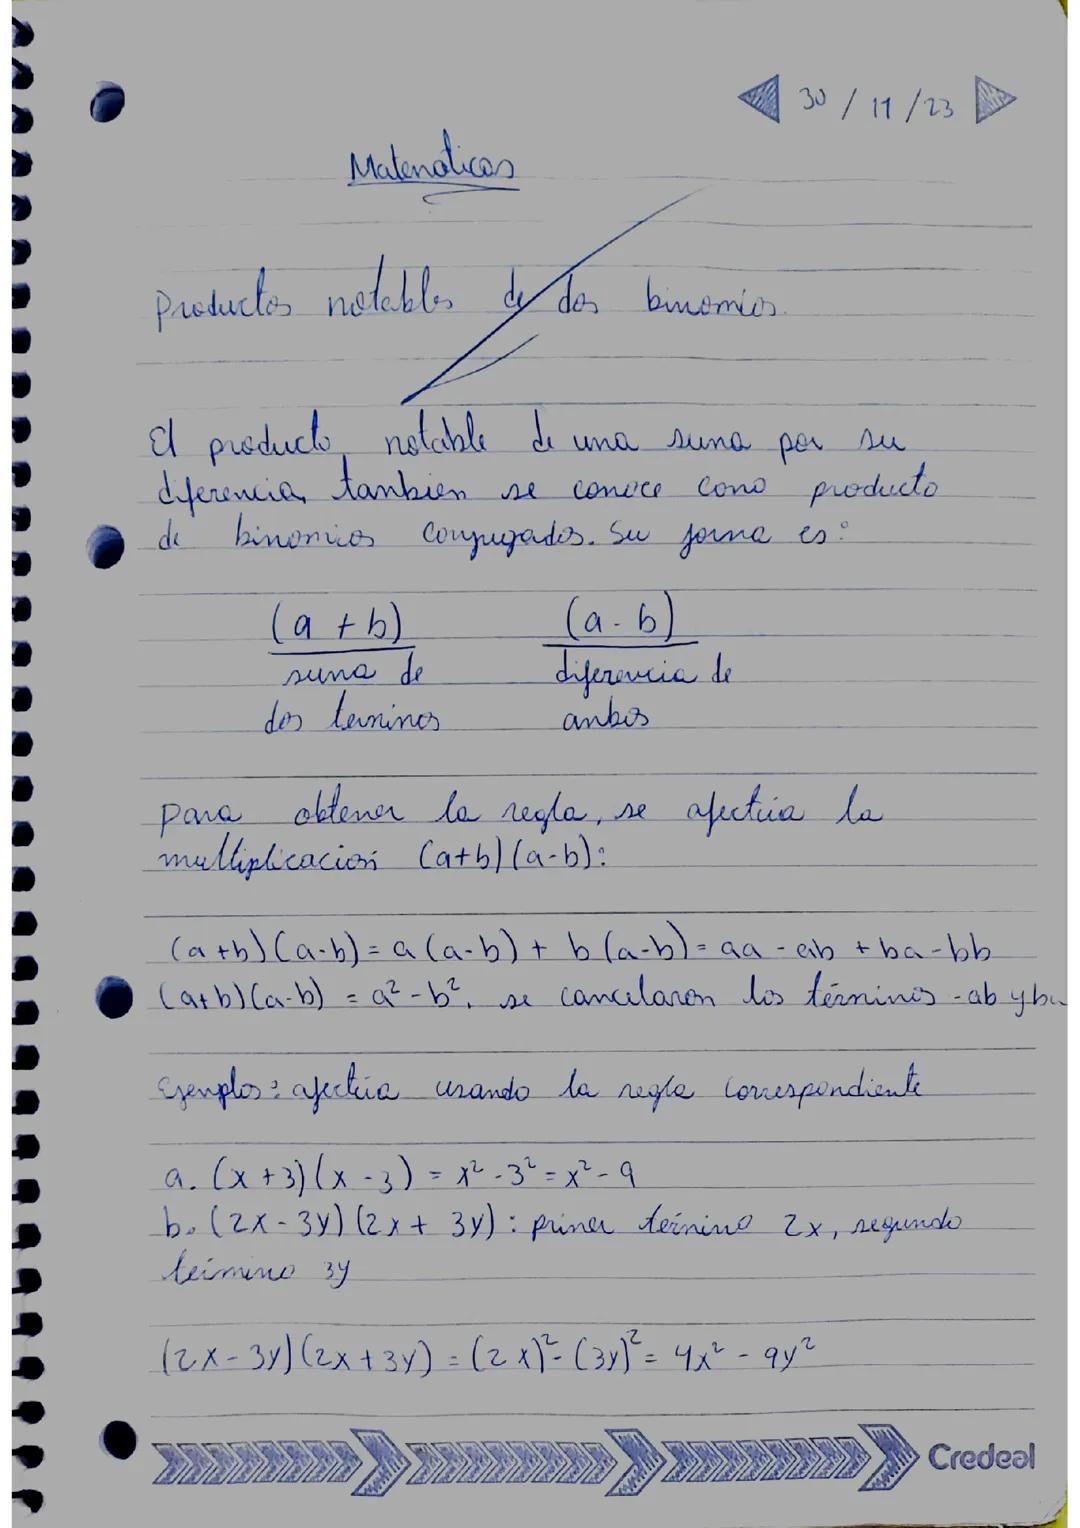 30 / 11 / 23
Matemáticas
Productos notables de dos binomios.
El producto notable de una suma por su
diferencia, tambien se conoce como producto
de binomios conjugados. Su forma es:
(a + b) (a - b)
suma de diferencia de
dos terminos ambos
para obtener la regla, se afectúa la
multiplicación (a+b)(a-b):
(a+b)(a-b) = a(a-b) + b(a-b) = aa - ab + ba - bb
(a+b)(a-b) = a² - b², se cancelaron los términos -ab y ba
Ejemplos: afectúa usando la regla correspondiente
a. (x+3)(x-3) = x² - 3² = x² - 9
b. (2x - 3y)(2x + 3y): primer término 2x, segundo
término 3y
(2x - 3y)(2x + 3y) = (2x)² - (3y)² = 4x² - 9y²
Credeal